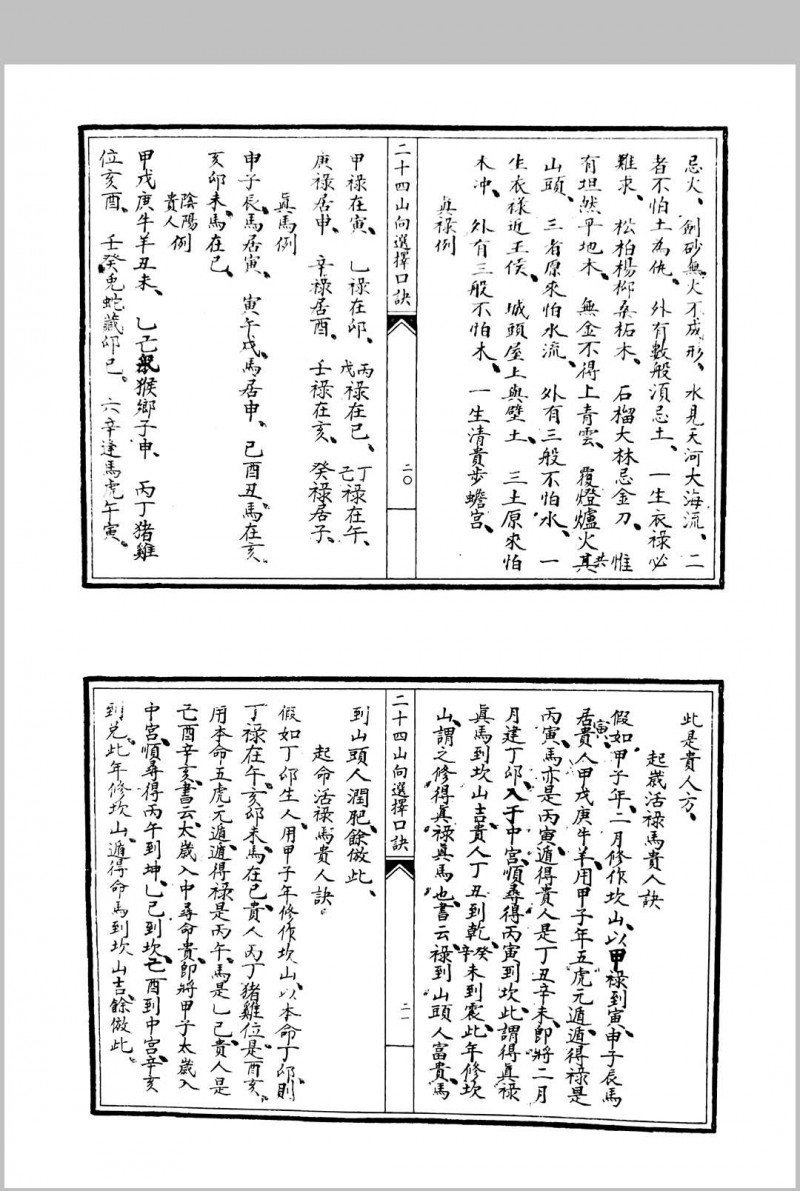 忌火、劍砂無火不成形、水見天河大海流、二
者不怕土為仇、外有數般須忌土、一生衣祿必
難求、松柏楊柳桑柘木、石榴大林忌金刀、惟
有坦然平地木、無金不得上青雲、覆燈爐火其共
山頭、三者原來怕水流、外有三般不怕水、一
生衣祿近王侯、城頭屋上與壁土、三土原來怕
木冲、外有三般不怕木、一生清貴步蟾宮、
眞祿例
二十四山向選擇口訣
二〇
甲祿在寅、乙祿在卯、丙戊祿在巳、丁己祿在午、
庚祿居申、辛祿居酉、壬祿在亥、癸祿居子、
眞馬例
申子辰馬居寅、寅午戌馬居申、巳酉丑馬在亥、
亥卯未馬在巳、
陰陽貴人例
甲戊庚牛羊丑未、乙己鼠猴鄉子申、丙丁猪雞
位亥酉、壬癸兎蛇藏卯巳。六辛逢馬虎午寅、
此是貴人方、
起歲活祿馬貴人訣
假如、甲子年、二月修作坎山、以甲祿到寅、申子辰馬
居寅貴人甲戊庚牛羊、用甲子年五虎元遁、遁得祿是
丙寅、馬亦是丙寅、遁得貴人是丁丑辛未、即將二月
月建丁卯、入于中宮、順尋得丙寅到坎、此謂得眞祿
眞馬到坎山吉、貴人丁丑到乾、癸辛未到震、此年修坎
山、謂之修得眞祿眞馬也、書云、祿到山頭人富貴、馬
二十四山向選擇口訣
二一
到山頭人潤肥、餘倣此、
起命活祿馬貴人訣。
假如丁卯生人、用甲子年修作坎山、以本命丁卯、則
丁祿在午、亥卯未馬在巳、貴人丙丁猪雞位、是酉亥、
用本命五虎元遁、遁得祿是丙午、馬是乙巳、貴人是
己酉辛亥、書云、太歲入中尋命貴、即將甲子太歲入
中宮、順尋得丙午到坤、乙巳到坎、己酉到中宮、辛亥
到兌、此年修坎山、遁得命馬到坎山吉、餘倣此。